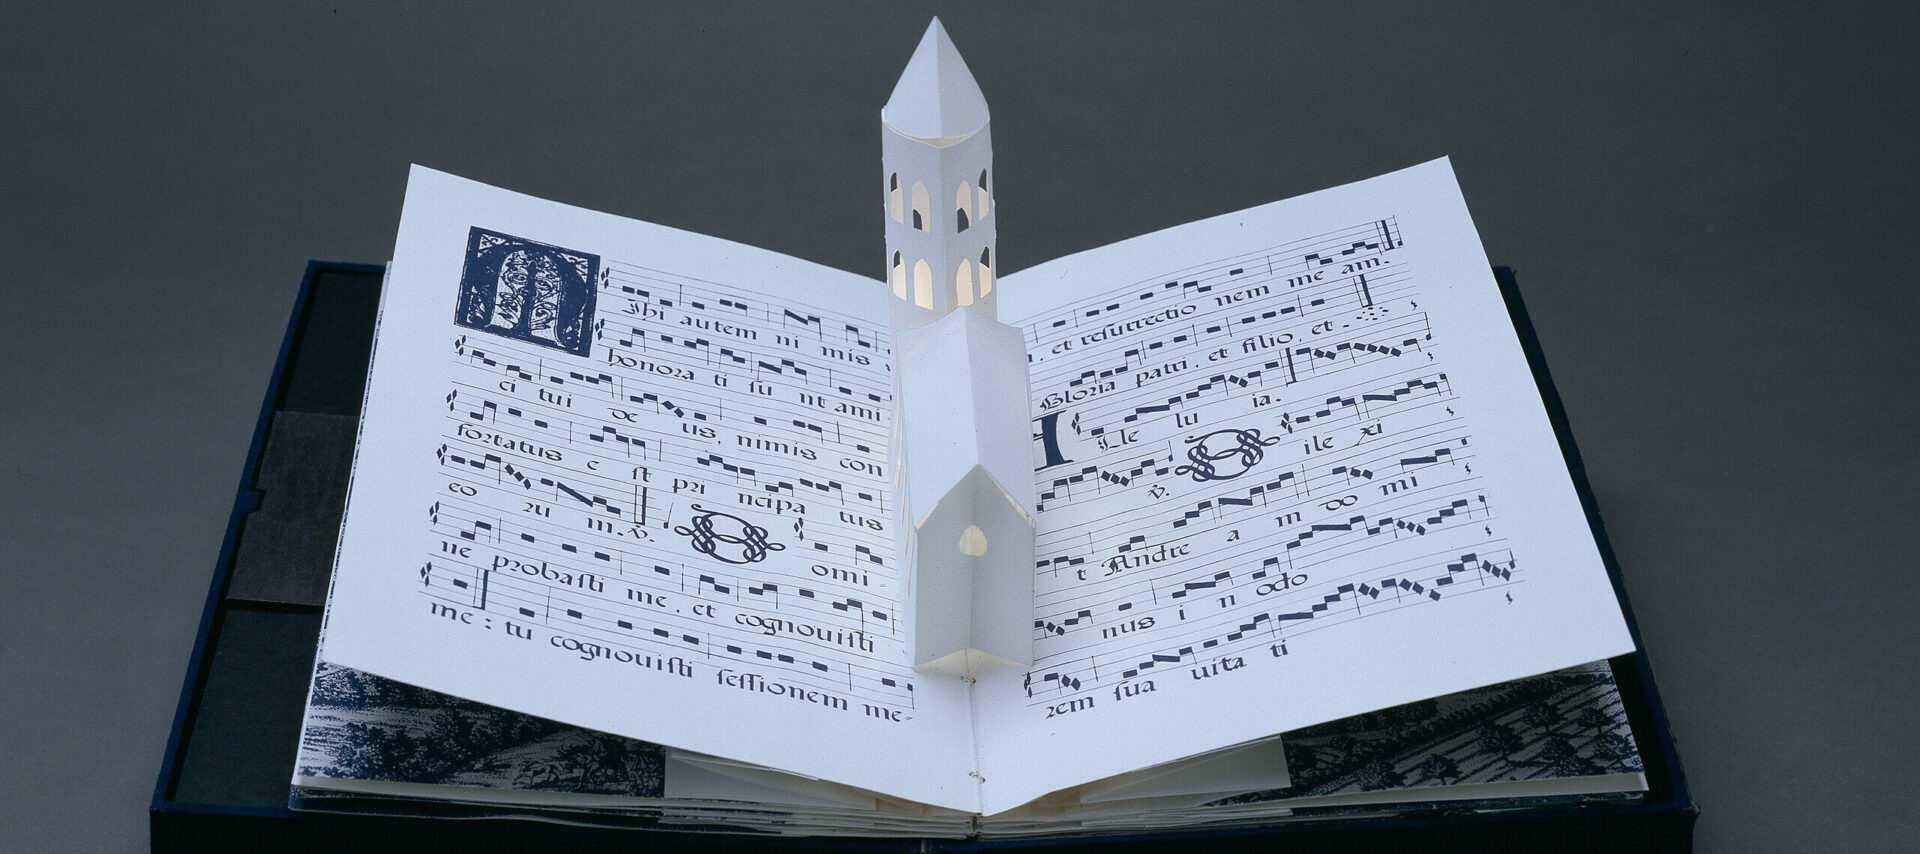 Mihi autem ni mis
honora ti su nt ami
ci tui de us, nimis con
fortatus e st pri ncipa tus
eo ru m. V. Domi
ne probasti me. et cognouisti
me: tu cognouisti sessionem me-
et resurrectio nem me am.
Gloria patri. et filio. et
Alle lu ia.
V. Dile xi
t Andre a m do mi
nus i n odo
rem sua uita ti